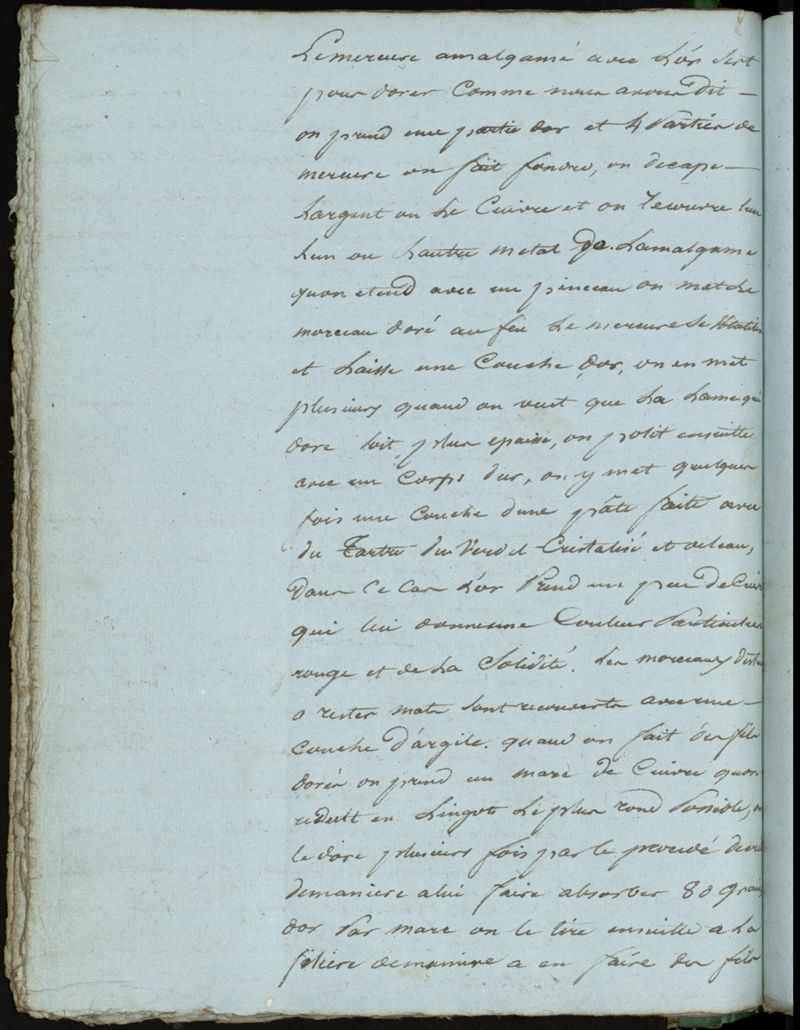 Le mercure amalgamé avec L'or sert
pour dorer Comme nous avons dit —
on prend une partie dor et 4 Parties de
mercure on fait fondre, on decape —
Largent ou Le Cuivre et on recouvre
Lun ou Lautre metal de Lamalgame
quon etend avec un pinceau on met le
morceau doré au feu Le mercure se volatilise
et Laisse une Couche dor, on en met
plusieurs quand on veut que La Lame qui
dore soit plus epaisse, on polit ensuitte
avec un Corps dur, on y met quelque
fois une Couche dune pâte faite avec
du Tartre du Verd Cristalisé et de Leau,
Dans Ce Cas L'or Prend un peu De Cuivre
qui lui donne une Couleur Particuliere
rouge et de La Solidité. Les morceaux
a rester mats sont recouverts avec une —
Couche D'argile. quand on fait des fils
dorés on prend un marc de Cuivre quon
reduit en Lingot Le plus rond Possible, on
le dore plusieurs fois par le procedé
de maniere a lui faire absorber 80 grains
dor Par marc on le tire ensuitte a La
filiere de maniere a en faire des fils